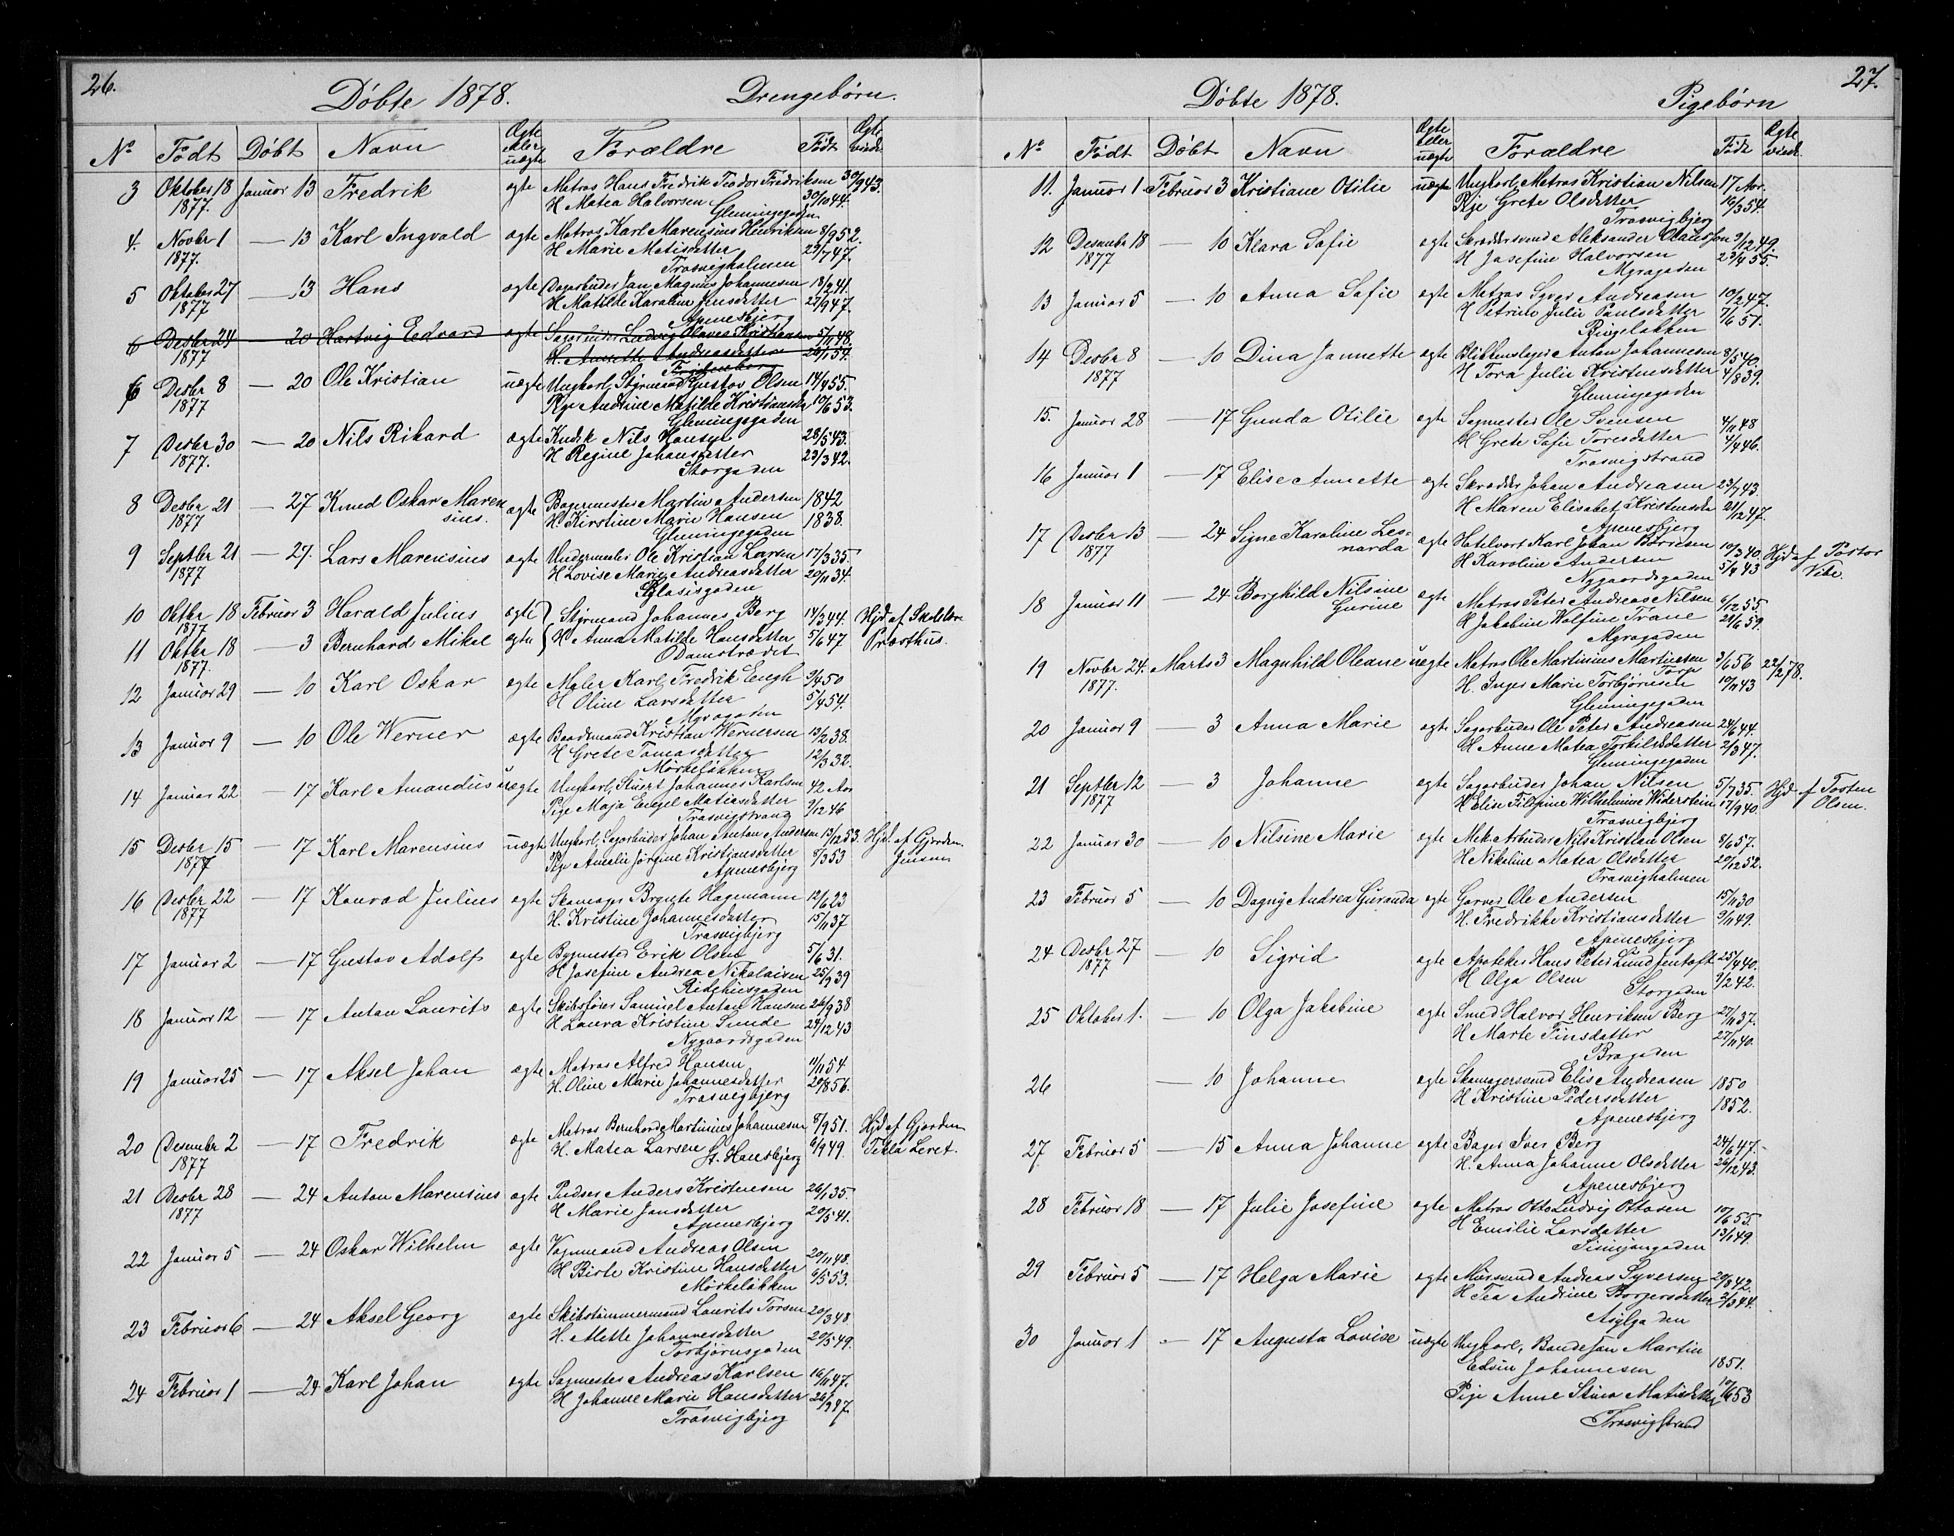 26.
Døbte 1878. Drengebørn.
No Født Døbt Navn Ægte eller uægte Forældre Født Ægte viede
3 Oktober 18 1877. Januar 13 Fredrik ægte Matros Hans Fredrik Teodor Fredriksen 30/9 43.
H Matea Halvorsen 30/10 44.
Glemmegaden
4. Novbr 1 1877. — 13 Karl Ingvald ægte Matros Karl Marensius Henriksen 8/9 52.
H Marie Matisdatter 29/7 47.
Trosvigholmen
5 Oktober 27 1877 — 13 Hans ægte Dagarbeider Jan Magnus Johannesen 18/2 41.
H Matilde Karoline Jensdatter 27/9 47.
Apenesbjerg
6 Desbr 24 1877 — 20 Hartvig Edvard ægte Sagarbeider Ludvig Olaves Kristiansen 5/11 48.
H. Annette Andreasdatter 20/1 54.
6 Desbr 8 1877 — 20 Ole Kristian uægte Ungkarl, Styrmand Gustav Olsen 14/4 55.
Pige Andrine Matilde Kristiansdtr 10/6 53.
Glemmegaden
7 Desbr 30 1877. — 20 Nils Rikard ægte Kudsk Nils Hansen 28/5 43.
H Regine Johansdatter 23/3 42.
Storgaden
8 Desbr 21 1877 — 27 Knud Oskar Marensius. ægte Bagermester Martin Andersen 1842
H Kirstine Marie Hansen 1838.
Glemmegaden
9 Septbr 21 1877 — 27. Lars Marensius ægte Undermester Ole Kristian Larsen 17/3 35.
H Lovise Marie Andreasdatter 20/11 34.
Blasisgaden
10 Oktbr 18 1877 Februar 3 Harald Julius ægte Styrmand Johannes Berg 14/3 44. Hjd af Skolelærer
11 Oktbr 18 1877. — 3 Bernhard Mikal ægte H Anna Matilde Hansdatter 5/6 47 Præsthus.
Damstrædet
12 Januar 29 — 10 Karl Oskar ægte Maler Karl Fredrik Engh 3/6 50
H Oline Larsdatter 5/4 54.
Myragaden
13 Januar 9 — 10 Ole Werner ægte Baadsmand Kristian Wernersen 13/2 38.
H Grete Tomasdatter 12/3 32.
Mørkeløkken
14 Januar 22 — 17 Karl Amandus uægte Ungkarl, Stuert Johannes Karlsen 42 Aar
Pige Maja Engel Matiasdatter 3/12 46
Trosvigstrand
15 Desbr 15 1877 — 17 Karl Marensius uægte Ungkarl, Sagarbeider Johan Anton Andersen 13/12 53. Hjd. af Gjordem.
Pige Amalie Jørgine Kristiansdatter 5/3 53 Jensen
Apenesbjerg
16 Desbr 22 1877 — 17 Konrad Julius ægte Skomager Brynte Hagemann 12/6 23
H. Kristine Johannesdatter 15/11 37
Trosvigbjerg
17 Januar 2 — 17 Gustav Adolf ægte Bygmester Erik Olsen 5/6 31.
H Josefine Andrea Nikolaisen 25/9 39
Ridehusgaden
18 Januar 12 — 17 Anton Laurits ægte Skibsfører Samuel Anton Hansen 26/9 38
H Laura Kristine Sunde 24/12 43
Nygaardsgaden
19 Januar 25 — 17 Aksel Johan ægte Matros Alfred Hansen 11/11 54
H. Oline Marie Johannesdatter 20/8 56.
Trosvigbjerg
20 Desember 2 1877 — 17 Fredrik ægte Matros Bernhard Martinius Johannesen 8/9 51. Hjd af Gjordem
H. Matea Larsen 6/9 49. Tekla Leret.
St. Hansbjerg
21 Desbr 28 1877 — 24 Anton Marensius ægte Pudser Anders Kristensen 26/1 35.
H Marie Jansdatter 20/5 41.
Apenesbjerg
22 Januar 5 — 24 Oskar Wilhelm ægte Vognmand Andreas Olsen 20/11 48.
H Birte Kristine Hansdatter 6/5 53.
Mørkeløkken
23 Februar 6 — 24 Aksel Georg ægte Skibstømmermand Laurits Torsen 20/3 48
H. Mette Johannesdatter 20/5 49.
Torbjørnsgaden
24 Februar 1 — 24 Karl Johan ægte Sagmester Andreas Karlsen 16/11 47.
H Johanne Marie Hansdatter
Trosvigbjerg
27.
Døbte 1878. Pigebørn
No Født Døbt Navn Ægte eller uægte Forældre Født Ægte viede
11. Januar 1 Februar 3 Kristiane Otilie uægte Ungkarl, Matros Kristian Nilsen 17 Aar.
Pige Grete Olsdatter 16/3 54.
Trosvigbjerg
12 Desember 18 1877 — 10 Klara Sofie ægte Skræddersvend Aleksander Olausson 9/12 49.
H Josefine Halvorsen 23/4 55.
Myragaden
13 Januar 5 — 10 Anna Sofie ægte Matros Syver Andreasen 10/2 47.
H Petrine Julie Paulsdatter 7/6 51.
Bingeløkken
14 Desbr 8 1877 — 10 Dina Jannette ægte Blikkenslager Anton Johannesen 8/5 40.
H Tora Julie Kristensdatter 4/8 39.
Glemmegaden
15. Januar 28 — 17 Gunda Otilie ægte Sagmester Ole Svensen 4/11 48
H Grete Sofie Toresdatter 4/4 46.
Trosvigstrand
16 Januar 1 — 17 Elise Annette ægte Skrædder Johan Andreasen 23/7 43.
H Maren Elisabet Kristensda 21/12 47.
Apenesbjerg
17 Desbr 13 1877 — 24 Signe Karoline Leonarda ægte Hotelvert Karl Johan Børresen 10/3 40. Hjd af Pastor
H Karoline Andersen 5/4 43 Vibe.
Nygaardsgaden
18 Januar 11 — 24 Borghild Nilsine Gurine ægte Matros Peter Andreas Nilsen 6/12 55
H Jakobine Wolfine Trane 21/6 59.
Myragaden
19 Novbr 24. 1877. Marts 3 Magnhild Oleane uægte Matros Ole Martinius Martinsen Torp 3/6 56 22/2 78.
H. Inger Marie Torbjørnsen 10/11 43
Glemmegaden
20 Januar 9 — 3 Anna Marie ægte Sagarbeider Ole Peter Andreasen 24/6 44.
H Anne Matea Torkildsdatter 2/3 47.
Glemmegaden
21 Septbr 12 1877 — 3 Johanne ægte Sagarbeider Johan Nilsen 5/7 35. Hjd af Tosten
H Elise Filipine Wilhelmine Widerstein 17/9 40. Olsen.
Trosvigbjerg
22 Januar 30 — 10 Nilsine Marie ægte Mek Arbeider Nils Kristian Olsen 8/6 57.
H Nikoline Matea Olsdatter 20/12 52.
Trosvigholmen
23 Februar 5 — 10 Dagny Andrea Guranda ægte Garver Ole Andersen 15/11 30
H. Fredrikke Kristiansdatter 9/11 49.
Apenesbjerg
24 Desbr 27 1877 — 10 Sigrid ægte Apotheker Hans Peter Lund Jentoft 25/4 40.
H Olga Olsen 3/2 42.
Storgaden
25 Oktober 1. — 10 Olga Jakobine ægte Smed Halvor Henriksen Berg 27/11 37.
H Marte Finsdatter 27/11 40.
Bragaden
26 — 10 Johanne ægte Skomagersvend Elis Andreasen 1850
H Kristine Pedersdatter 1852.
Apenesbjerg
27 Februar 5 — 15 Anna Johanne ægte Bager Iver Berg 24/6 47.
H. Anna Johanne Olsdatter 26/12 43.
Apenesbjerg
28 Februar 18 — 17 Julie Josefine ægte Matros Otto Ludvig Ottosen 10/6 55.
H Emilie Larsdatter 13/1 49.
29 Februar 5 — 17 Helga Marie ægte Mursvend Andreas Syversen 29/8 42.
H Tea Andrine Borgersdatter 2/3 44.
Asylgaden
30 Januar 1 — 17 Augusta Lovise uægte Ungkarl, Bandejan Martin
Edvin Johannesen 1851.
Pige Anne Stina Matisdatter 10/6 53
Trosvigstrand